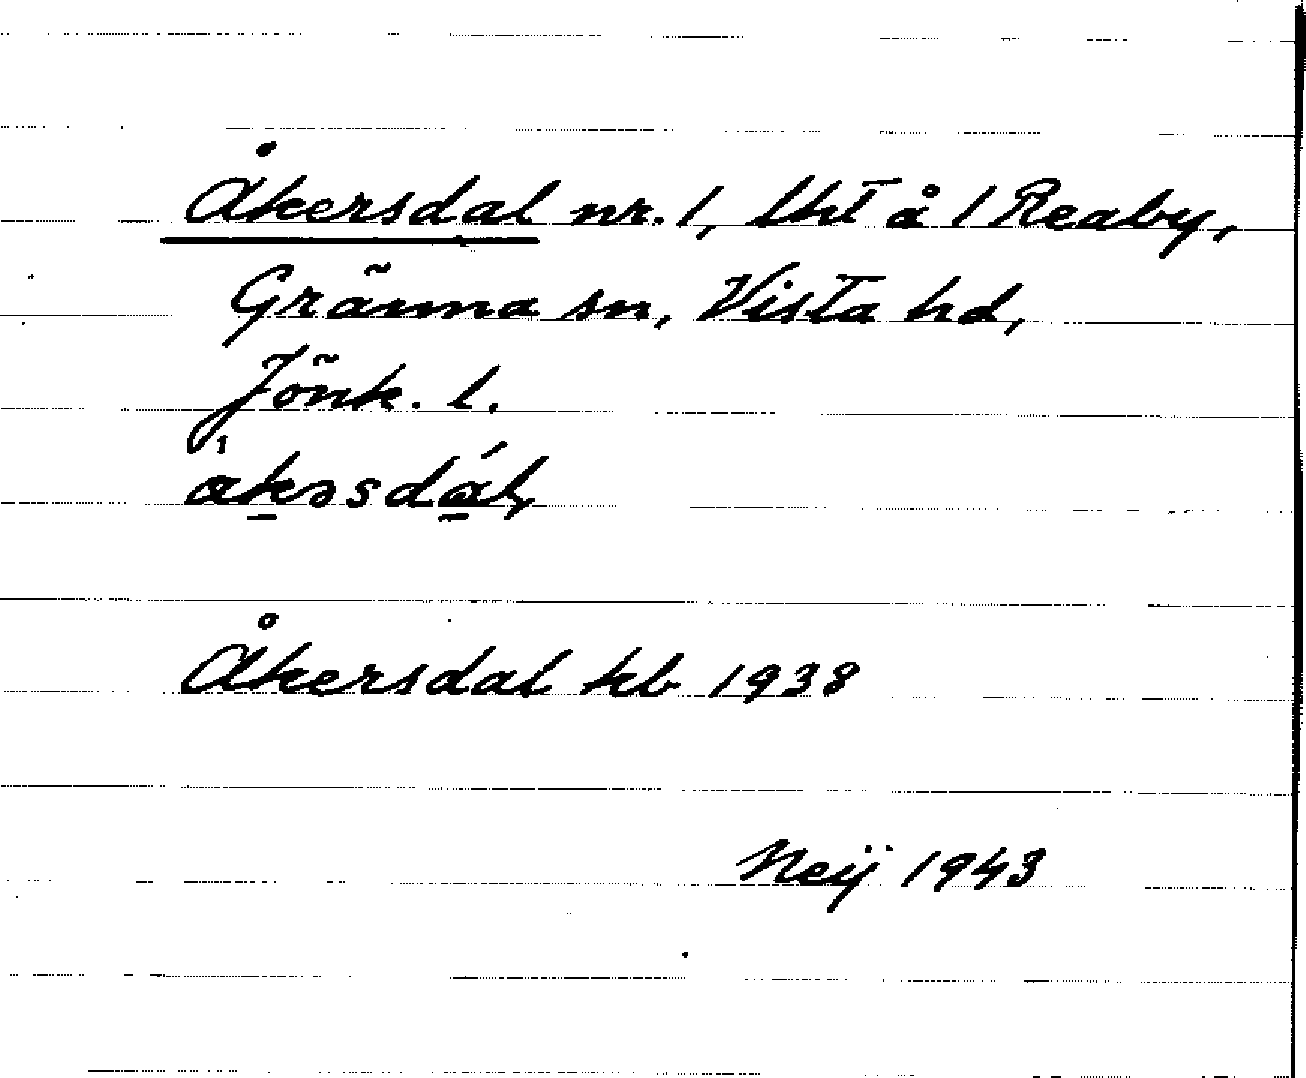 Åkersdal nr. 1, lht å 1 Reaby,
Gränna sn, Vista hd,
Jönk. l.
Åkersdal kb 1938
Neij 1943